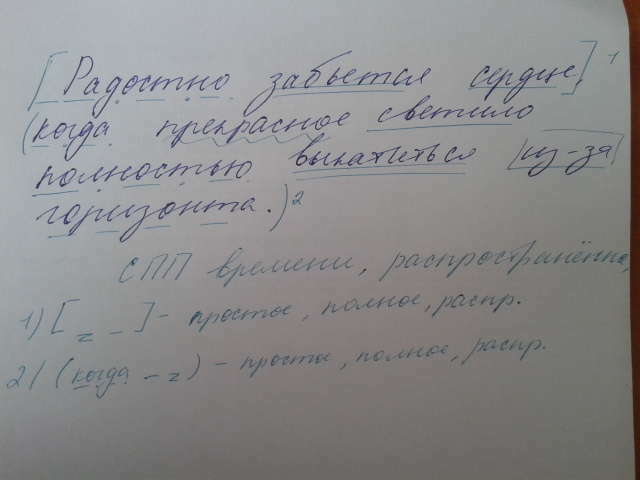 [Радостно забьется сердце,]1
(когда прекрасное светило
полностью выкатиться из-за
горизонта.)2
СПП времени, распространённое,
1) [= –] – простое, полное, распр.
2) (когда – =) – простое, полное, распр.